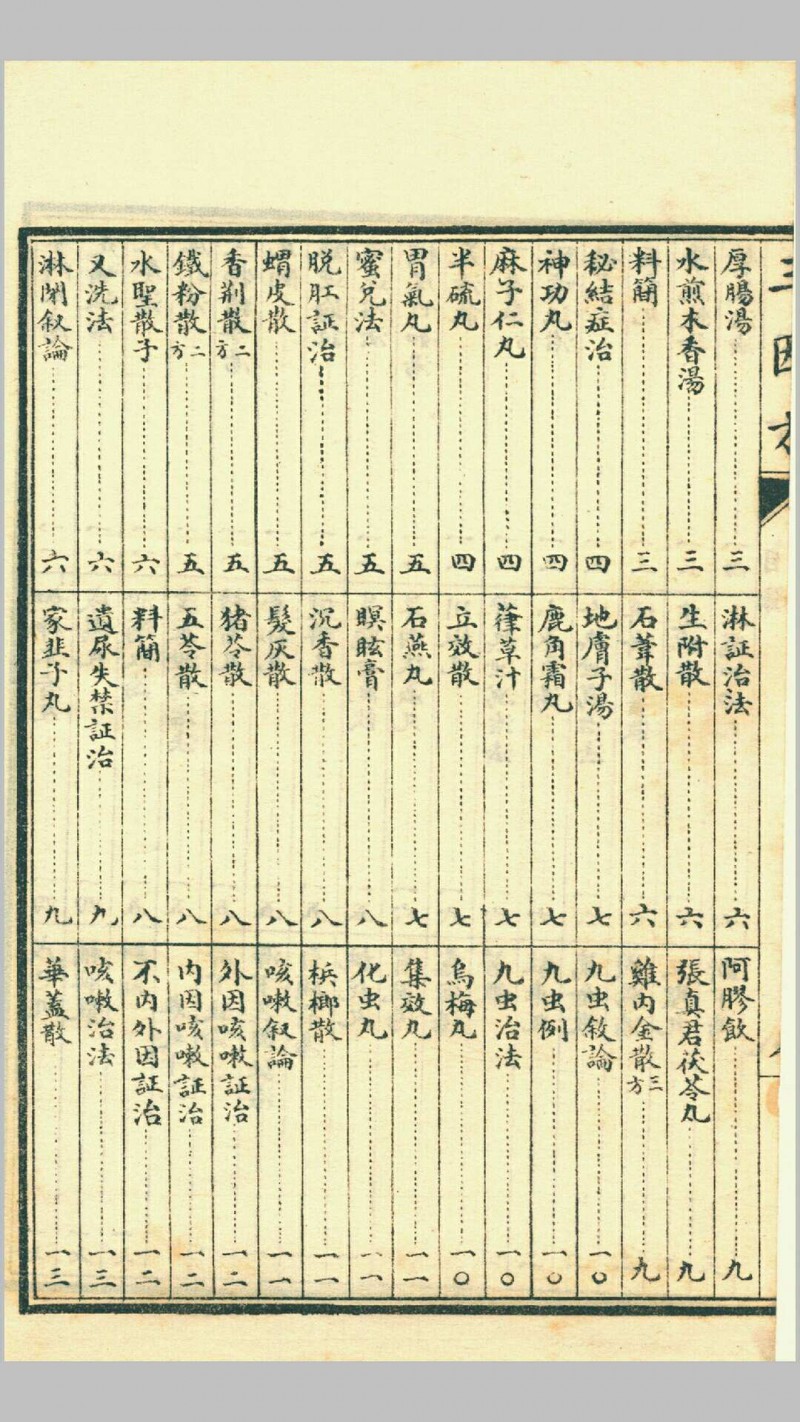 三因方
厚腸湯 三
水煎木香湯 三
料簡 三
秘結症治 四
神功丸 四
麻子仁丸 四
半硫丸 四
胃氣丸 五
蜜兌法 五
脱肛証治 五
蝟皮散 五
香荆散二方 五
鐵粉散二方 五
水聖散子 六
又洗法 六
淋閉叙論 六
淋証治法 六
生附散 六
石葦散 六
地膚子湯 七
鹿角霜丸 七
葎草汁 七
立效散 七
石燕丸 七
瞑眩膏 八
沉香散 八
髮灰散 八
猪苓散 八
五苓散 八
料簡 八
遺尿失禁証治 九
家韭子丸 九
阿膠飲 九
張真君茯苓丸 九
雞内金散三方 九
九虫敘論 一〇
九虫例 一〇
九虫治法 一〇
烏梅丸 一〇
集效丸 一一
化虫丸 一一
檳榔散 一一
咳嗽叙論 一一
外因咳嗽証治 一二
内因咳嗽証治 一二
不内外因証治 一二
咳嗽治法 一三
華蓋散 一三